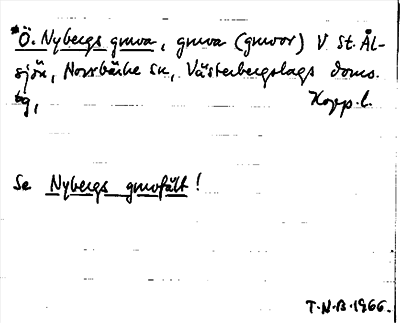 *Ö. Nybergs gruva, gruva (gruvor) V St. Ål-
sjön, Norrbärke sn, Västerbergslags doms.
tg, Kopp. l.
Se Nybergs gruvfält!
T.N.B. 1966.